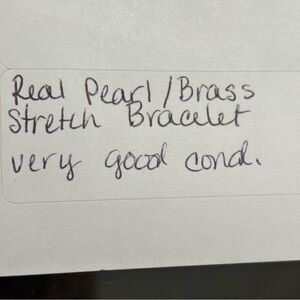 Real Pearl / Brass
Stretch Bracelet
very good cond.